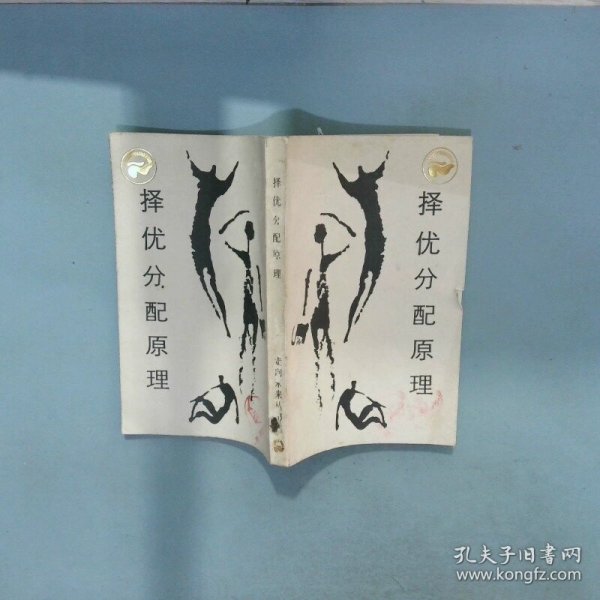 择优分配原理
择优分配原理
走向未来丛书
择优分配原理
孔夫子旧书网
www.kongfz.com